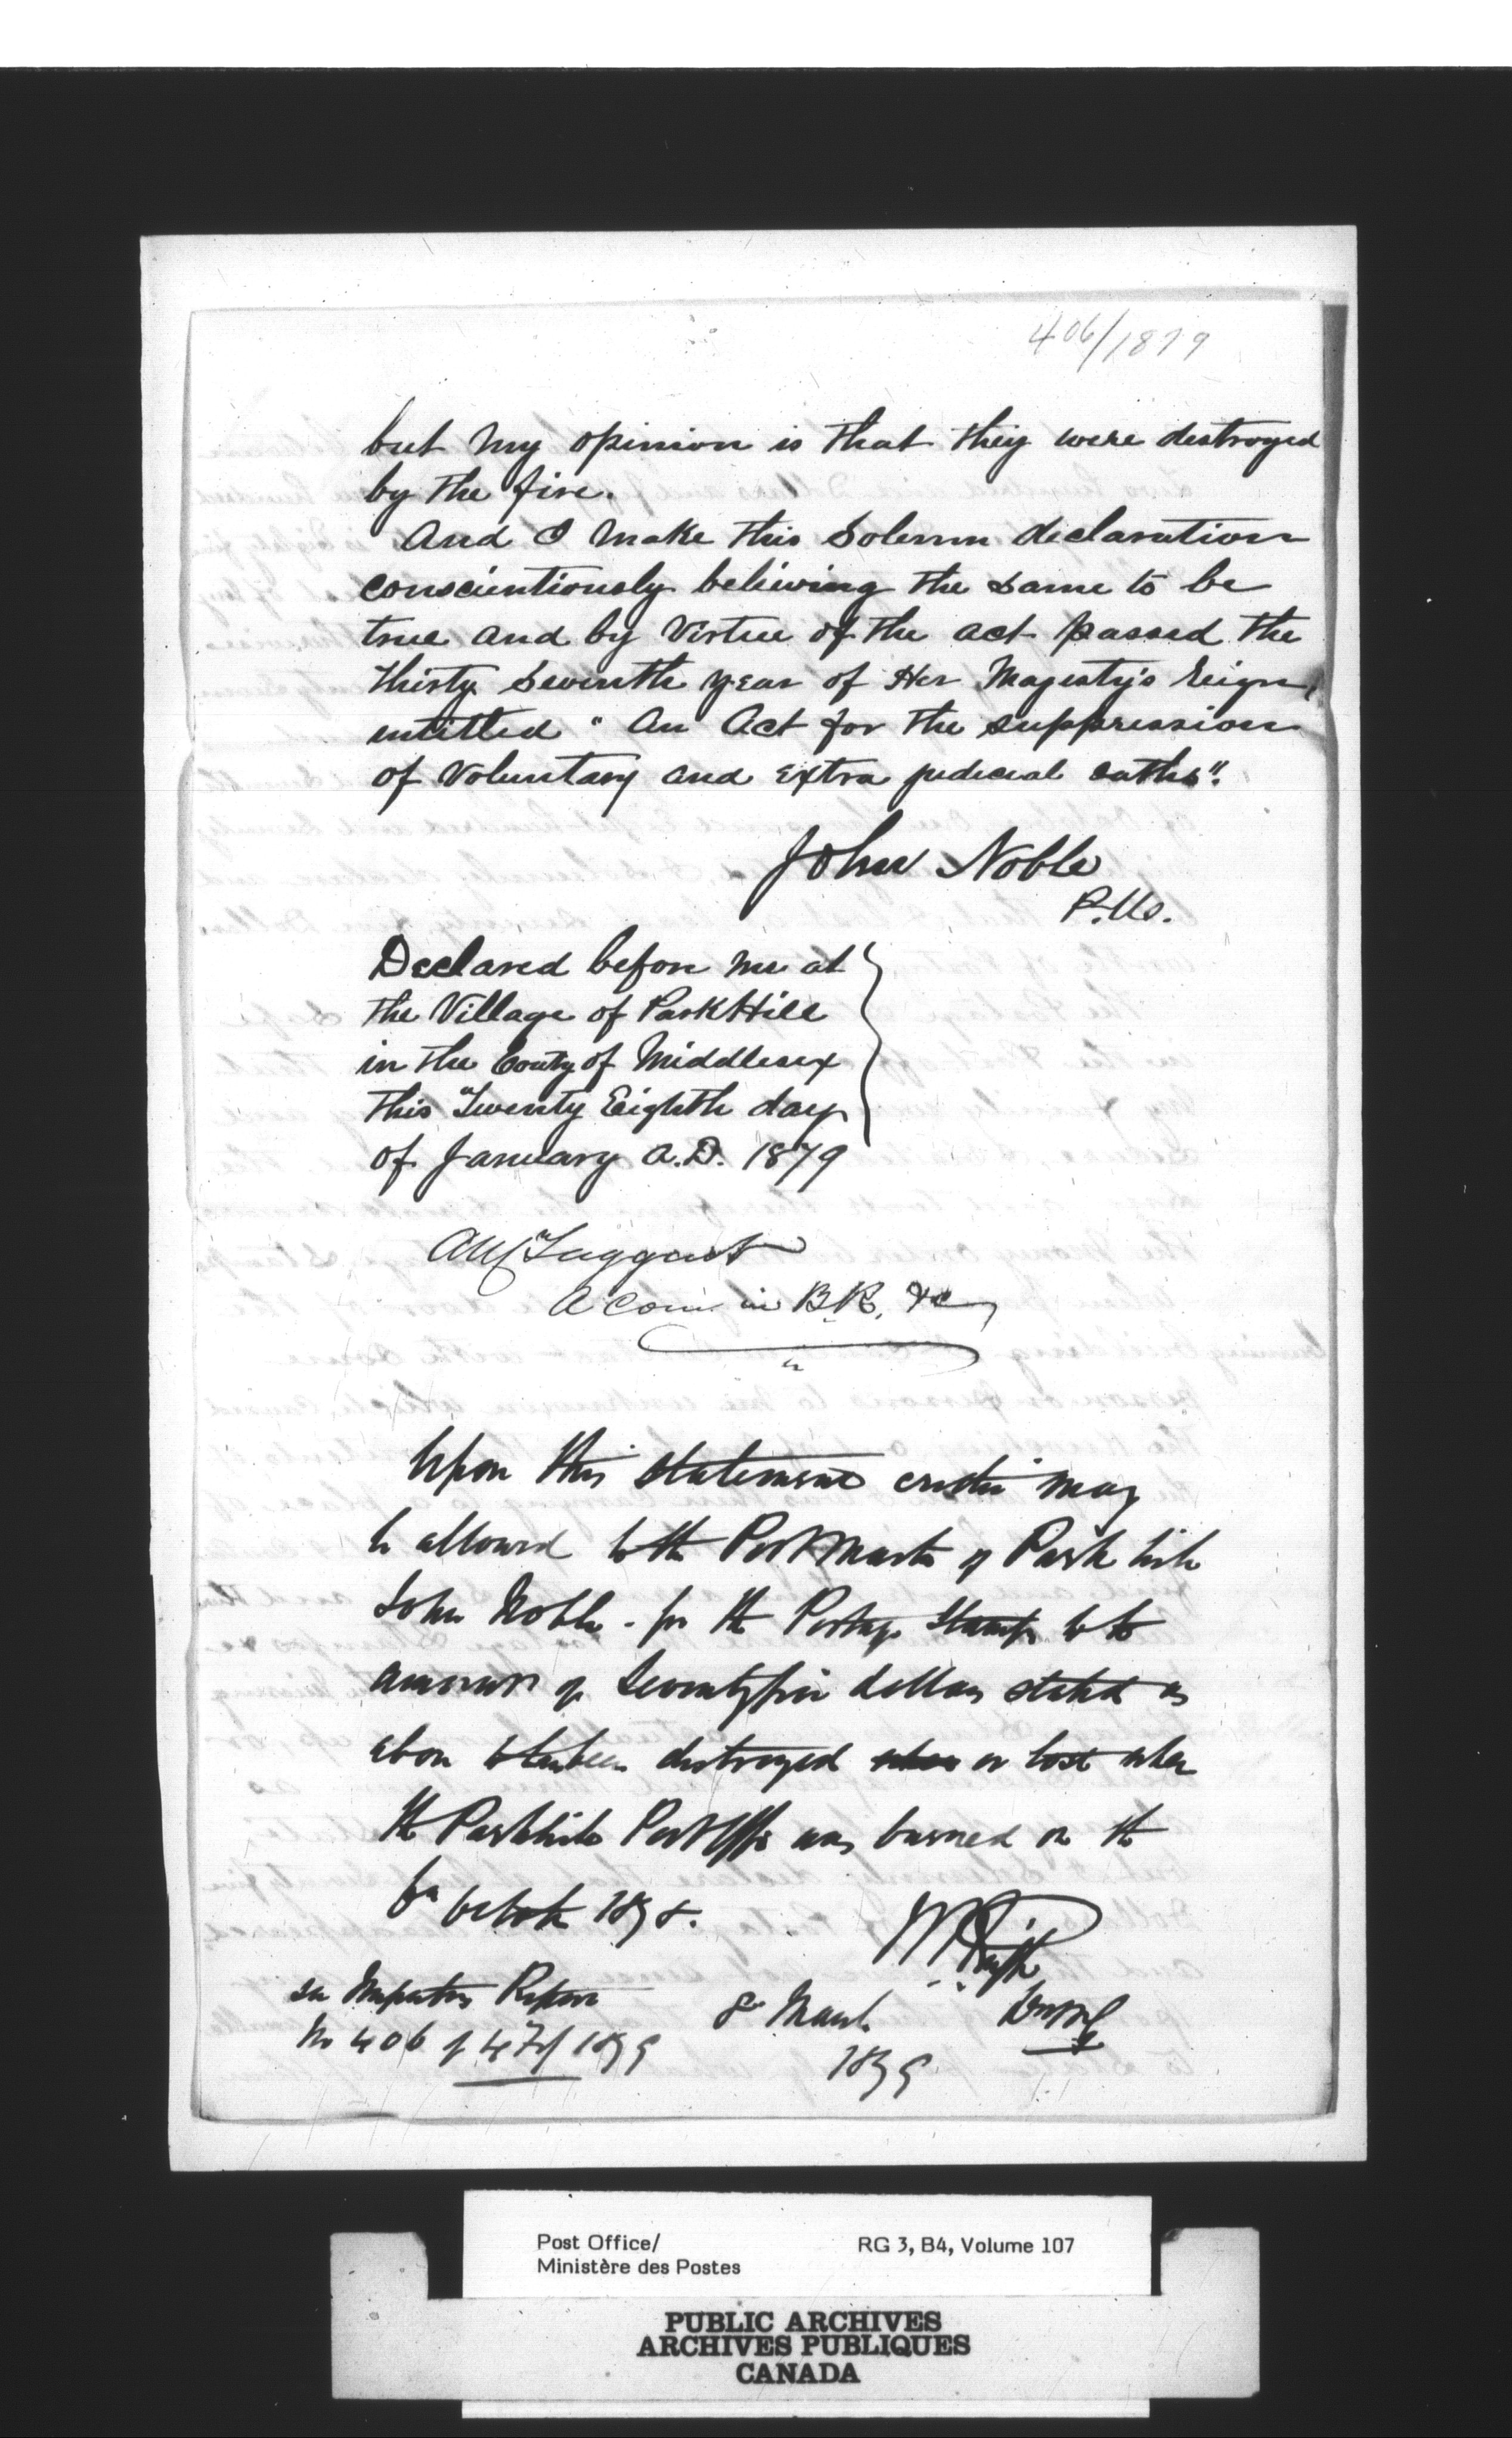 406/1879
but my opinion is that they were destroyed
by the fire.
And I make this Solemn declaration
conscientiously believing the same to be
true and by Virtue of the act passed the
thirty Seventh year of Her Majesty's Reign,
entitled "An Act for the suppression
of Voluntary and extra judicial oaths".
John Noble
P.M.
Declared before me at
the Village of ParkHill
in the Couty of Middlesex
this Twenty Eighth day
of January A.D. 1879
Taggart
A Com in B.R. &c
Upon this statement credit may
be allowed to the Postmaster of Park hill
John Noble - for the Postage Stamps to the
amount of Seventyfive dollars stated as
above to have been destroyed or lost when
the Parkhill Post Office was burned on the
October 1878.
see Inspectors Report
No 406 of 1879
8 March
1879
Post Office/
Ministère des Postes
RG 3, B4, Volume 107
PUBLIC ARCHIVES
ARCHIVES PUBLIQUES
CANADA